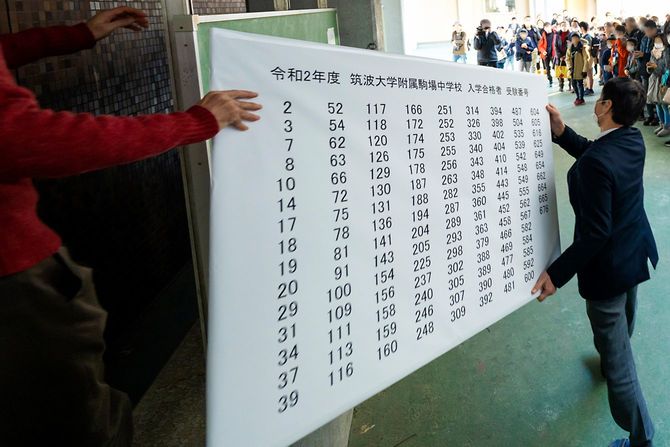 令和2年度 筑波大学附属駒場中学校 入学合格者 受験番号
2 52 117 166 251 314 394 487 604
3 54 118 172 252 326 398 504 605
7 62 120 174 253 330 402 535 616
8 63 126 175 255 334 404 539 625
10 66 129 178 256 343 410 542 648
14 72 130 187 263 348 414 548 654
17 75 131 188 282 355 445 549 661
18 78 136 194 287 360 448 552 662
19 81 141 205 289 361 452 562 664
20 91 143 225 293 363 458 567 665
29 100 154 237 298 379 466 582 676
31 109 156 240 302 385 469 584
34 111 158 246 305 389 477 585
37 113 159 248 307 390 480 592
39 116 160 309 392 481 600